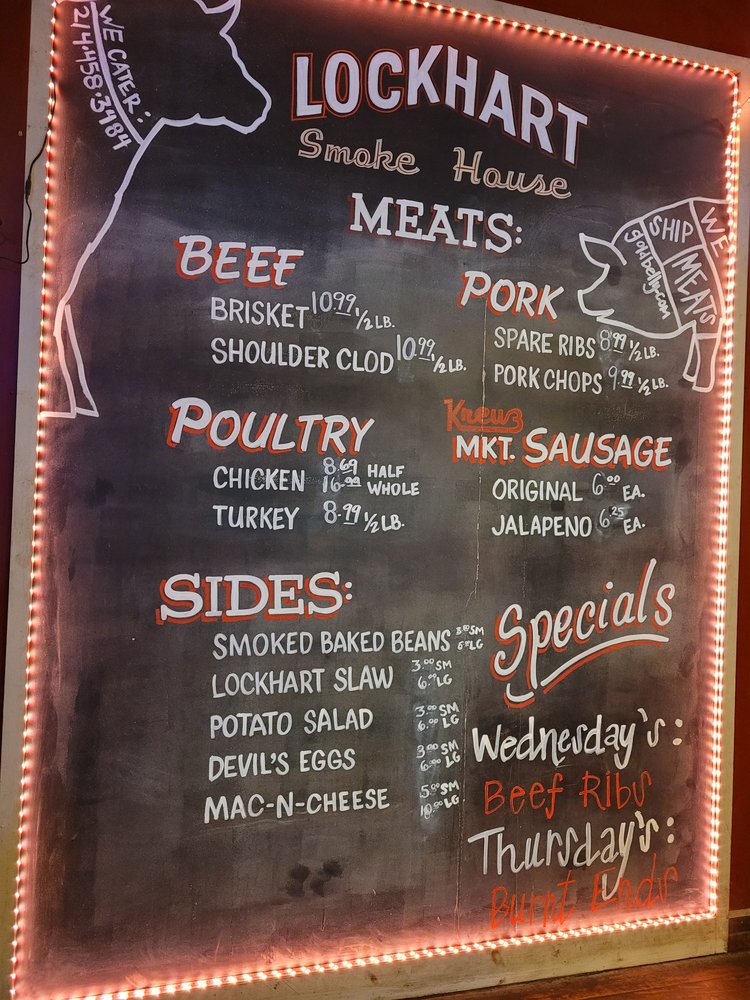 WE CATER:
214.458.3484
LOCKHART
Smoke House
MEATS:
BEEF
BRISKET 10.99 1/2 LB.
SHOULDER CLOD 10.99 1/2 LB.
PORK
SPARE RIBS 8.99 1/2 LB.
PORK CHOPS 9.99 1/2 LB.
WE
SHIP
MEATS
goldbelly.com
POULTRY
CHICKEN 8.69 HALF
16.99 WHOLE
TURKEY 8.99 1/2 LB.
Kreuz
MKT. SAUSAGE
ORIGINAL 6.00 EA.
JALAPENO 6.25 EA.
SIDES:
SMOKED BAKED BEANS 3.00 SM
6.00 LG
LOCKHART SLAW 3.00 SM
6.00 LG
POTATO SALAD 3.00 SM
6.00 LG
DEVIL'S EGGS 3.00 SM
6.00 LG
MAC-N-CHEESE 5.00 SM
10.00 LG
Specials
Wednesday's:
Beef Ribs
Thursday's:
Burnt Ends